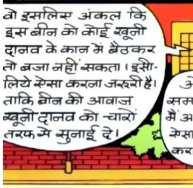 वो इसलिए अंकल कि
इस बीन को कोई खूनी
दानव के कान में बैठकर
तो बजा नहीं सकता। इसी-
लिये ऐसा करना जरूरी है।
ताकि बीन की आवाज
खूनी दानव को चारों
तरफ से सुनाई दे।